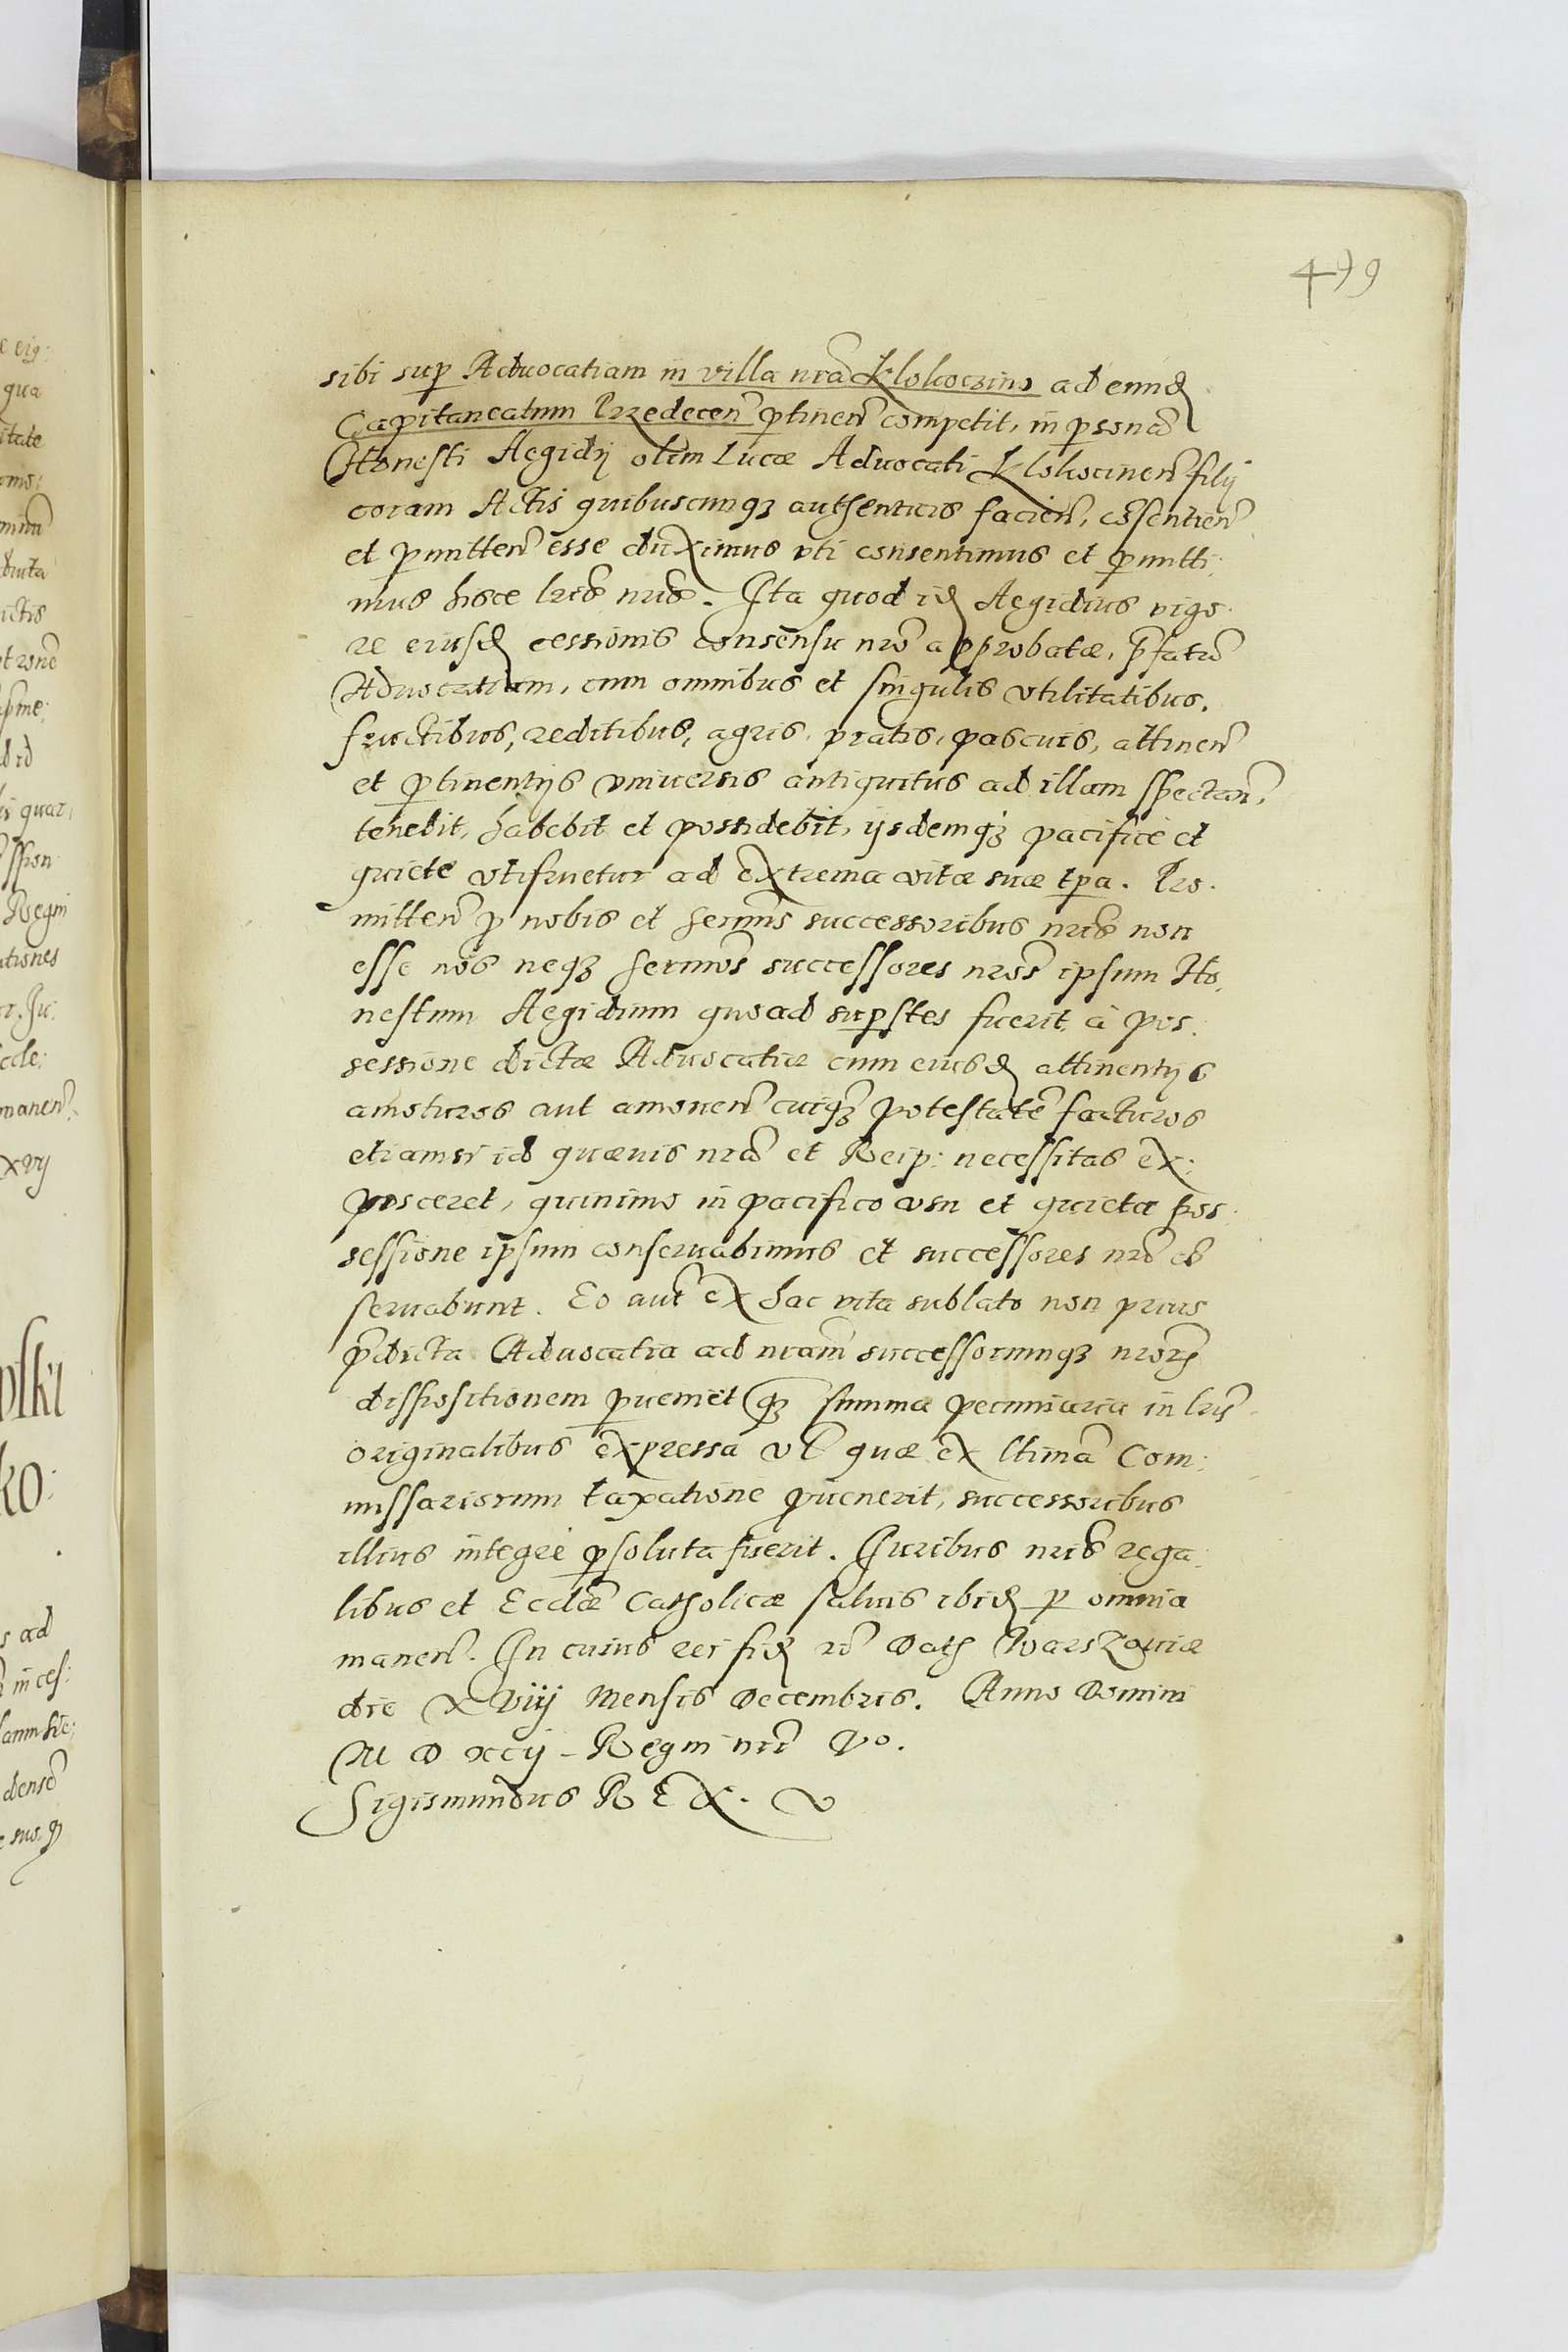 479
sibi sup Aduocatiam in villa nrã Klokoczino ad eund
Capitaneatum Przedecen ptinen competit, in psona
Honesti Aegidij olim Lucæ Aduocati Klokocinen filij
coram Actis quibuscunq authenticis facien, cõsentien
et pmitten esse duximus vti consentimus et pmitti:
mus hisce lris nris. Ita quod id Aegidius vigo:
re eiusd cessionis consensu nro approbatæ, pfatã
Aduocatiam, cum omnibus et singulis vtilitatibus,
fructibus, reditibus, agris, pratis, pascuis, attinen
et ptinentijs vniuersis antiquitus ad illam spectan,
tenebit, habebit et possidebit, ijsdemq pacifice et
quiete vtifruetur ad extrema vitæ suæ tpa. Pro:
mitten p nobis et Sermis successoribus nris non
esse nos neq Sermos successores nros ipsum Ho:
nestum Aegidium quoad supstes fuerit, à pos:
sessione dictæ Aduocatiæ cum eiusd attinentijs
amoturos aut amouen cuiq potestatẽ facturos
etiamsi id quæuis nra et Reip: necessitas ex:
posceret, quinimo in pacifico vsu et quieta pos:
sessione ipsum conseruabimus et successores nri cõ
seruabunt. Eo aut ex hac vita sublato non prius
pdicta Aduocatia ad nram successorumq nror
dispositionem pueniet q summa pecuniaria in lris
originalibus expressa vl quæ ex ltima Com:
missariorum taxatione puenerit, successoribus
illius integre psoluta fuerit. Iuribus nris rega:
libus et Ecclæ Catholicæ saluis ibid p omnia
manen. In cuius rei fid rc Dat Warszauiæ
die XVIII Mensis Decembris. Anno Domini
M D xcij Regni nri Vo.
Sigismundus REX.